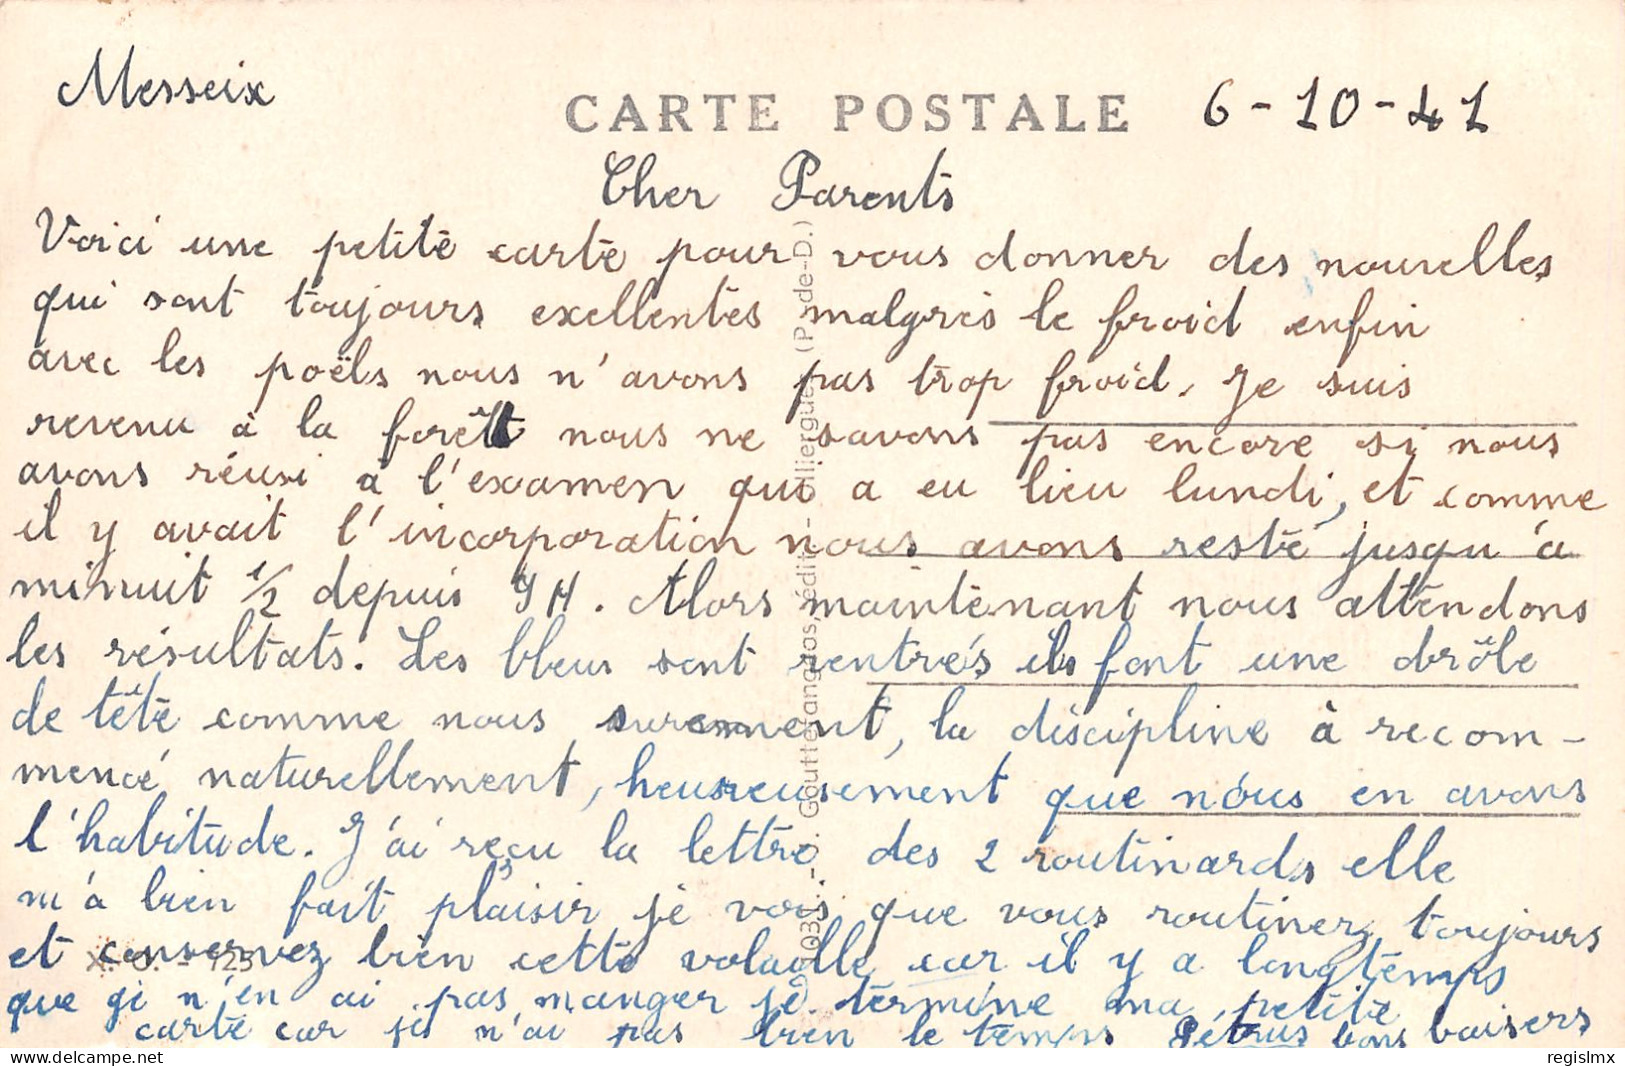 Messeix
CARTE POSTALE
6-10-41
Cher Parents
Voici une petite carte pour vous donner des nouvelles
qui sont toujours exellentes malgrés le froid enfin
avec les poëls nous n'avons pas trop froid. Je suis
revenu à la forêt nous ne savons pas encore si nous
avons réusi à l'examen qui a eu lieu lundi, et comme
il y avait l'incorporation nous avons resté jusqu'à
minuit 1/2 depuis 9H. Alors maintenant nous attendons
les résultats. Les bleus sont rentrés ils font une drôle
de tête comme nous surement, la discipline à recom-
mencé naturellement, heureusement que nous en avons
l'habitude. J'ai reçu la lettre des 2 routinards elle
m'a bien fait plaisir je vois que vous routinez toujours
et conservez bien cette volaille car il y a longtemps
que gi n'en ai pas manger je termine ma petite
carte car je n'ai pas bien le temps Pétrus bons baisers
Goutte-fangeas, édit. - Olliergues (P.-de-D.)
regislmx